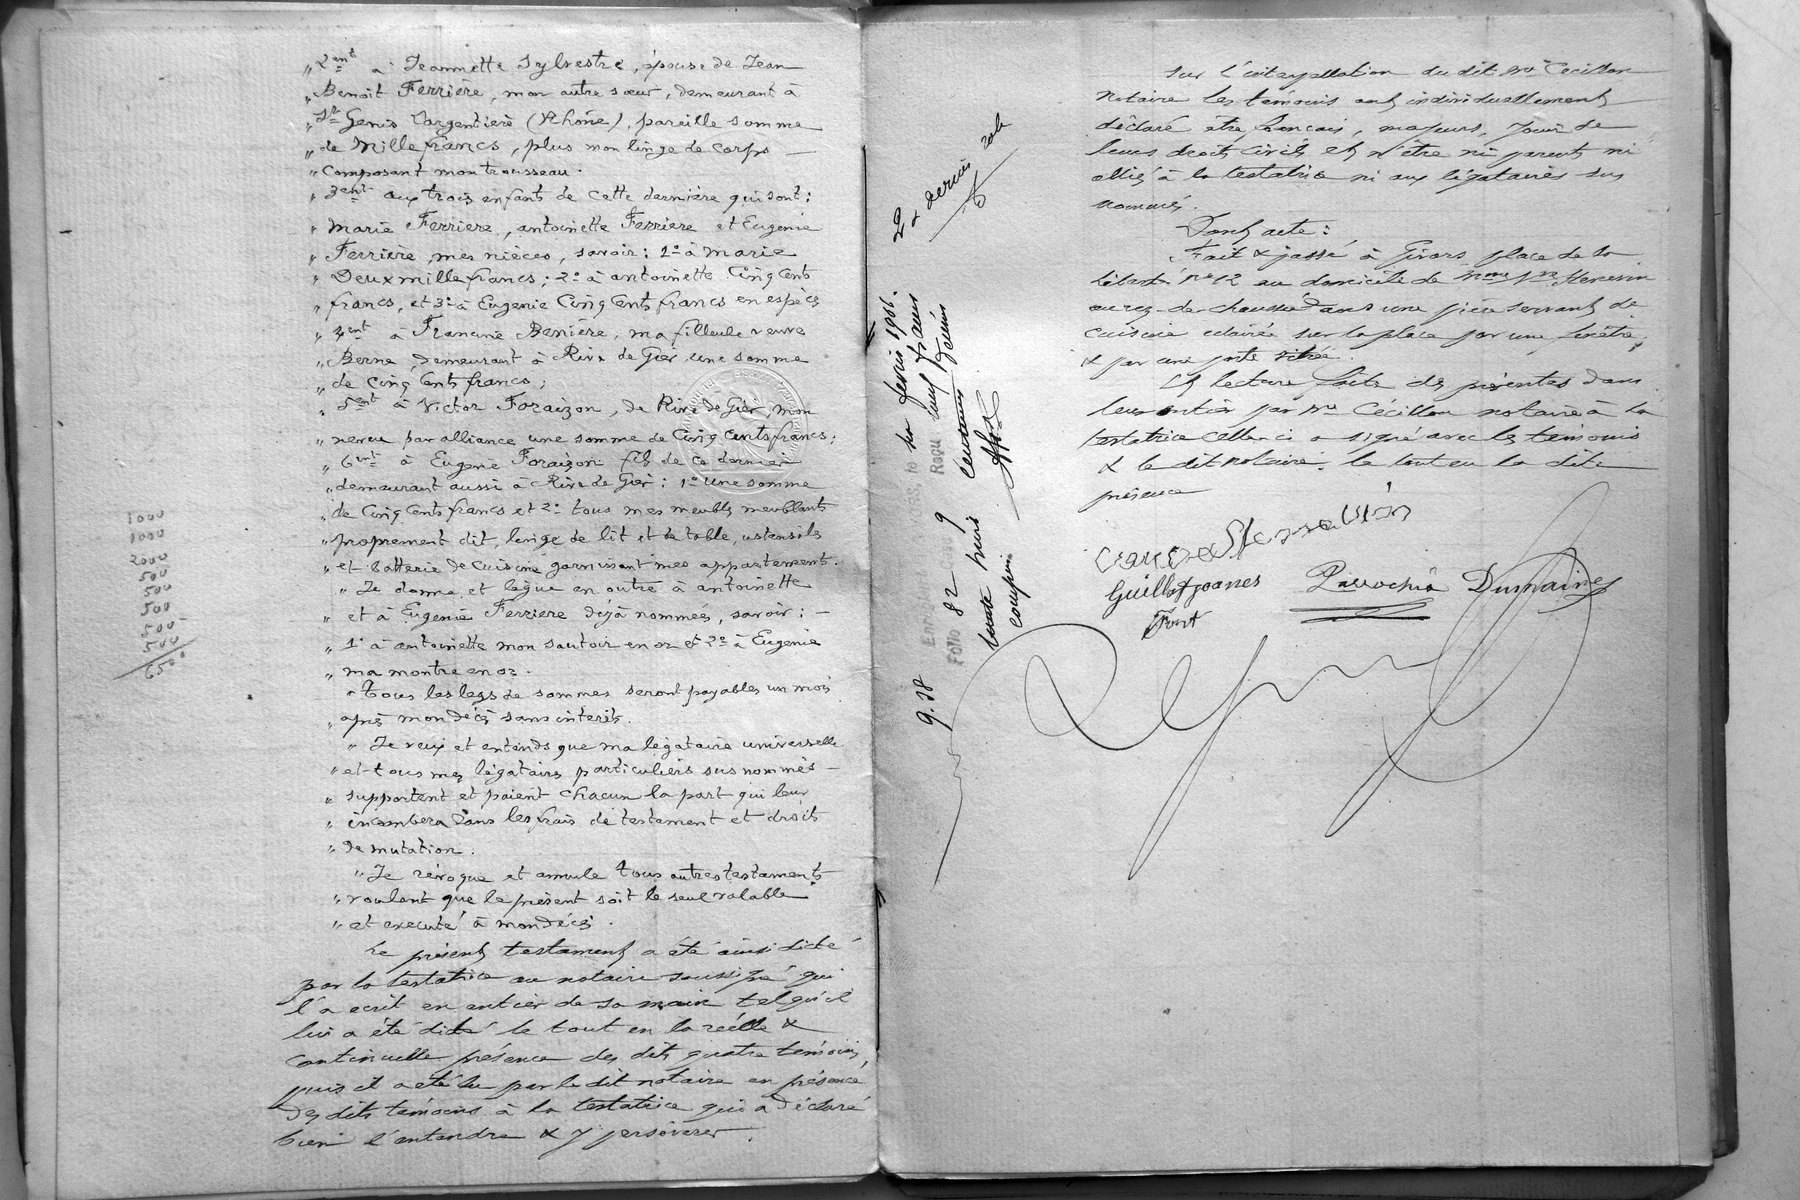 „ 2ent à Jeannette Sylvestre, épouse de Jean
„ Benoit Ferrière, mon autre sœur, demeurant à
„ St Genis l'argentière (Rhône), pareille somme
„ de Mille francs, plus mon linge de corps —
„ composant mon trousseau.
„ 3ent aux trois enfants de cette dernière qui sont :
„ Marie Ferrière, antoinette Ferriere et Eugenie
„ Ferrière, mes nièces, savoir : 1° à Marie
„ Deux mille francs ; 2° à antoinette Cinq Cents
„ francs, et 3° à Eugenie Cinq Cents francs en espèces
„ 4ent à Francine Benière, ma filleule veuve
„ Berne, demeurant à Rive de Gier, une somme
„ de Cinq Cents francs ;
„ 5ent à Victor Foraizon, de Rive de Gier, mon
„ neveu par alliance une somme de Cinq Cents francs ;
„ 6ent à Eugenie Foraizon fils de ce dernier
„ demeurant aussi à Rive de Gier : 1° Une somme
„ de Cinq Cents francs et 2° tous mes meubles meublants
„ proprement dit, linge de lit et de table, ustensiles
„ et batterie de Cuisine garnissant mes appartements.
„ Je donne et lègue en outre à antoinette
„ et à Eugenie Ferriere déjà nommées, savoir : —
„ 1° à antoinette mon sautoir en or et 2° à Eugenie
„ ma montre en or.
„ Tous les legs de sommes seront payables un mois
„ après mon décès sans interêts.
„ Je veux et entends que ma légataire universelle
„ et tous mes légataires particuliers sus nommés —
„ supportent et paient chacun la part qui leur
„ incombera dans les frais de testament et droits
„ de mutation.
„ Je révoque et annule tous autres testaments
„ voulant que le présent soit le seul valable
„ et executé à mon décès.
Le présent testament a été ainsi dicté
par la testatrice au notaire soussigné qui
l'a ecrit en entier de sa main tel qu'il
lui a été dicté le tout en la réelle &
continuelle présence des dits quatre temoins,
puis il a été lu par le dit notaire en présence
des dits témoins à la testatrice qui a déclaré
bien l'entendre & y persévérer.
1000
1000
2000
500
500
500
500
500
6500
Sur l'interpellation du dit Me Cécillon
notaire les témoins ont individuellement
déclaré être français, majeurs, jouir de
leurs droits civils et n'être ni parents ni
alliés à la testatrice ni aux légataires sus
nommés.
Dont acte :
Fait & passé à Givors, place de la
Liberté n° 12 au domicile de Mme Vve
au rez-de-chaussée dans une pièce servant de
cuisine eclairée sur la place par une fenêtre,
& par une porte vitrée.
Et lecture faite des présentes dans
leur entier par Me Cécillon notaire à la
testatrice celle-ci a signé avec les témoins
& le dit notaire, le tout en la dite
présence
Guillot joanes
Dumaine
Font
2e & dernier role
Folio 82 Case 9
Reçu neuf francs
trente huit centimes
9.38